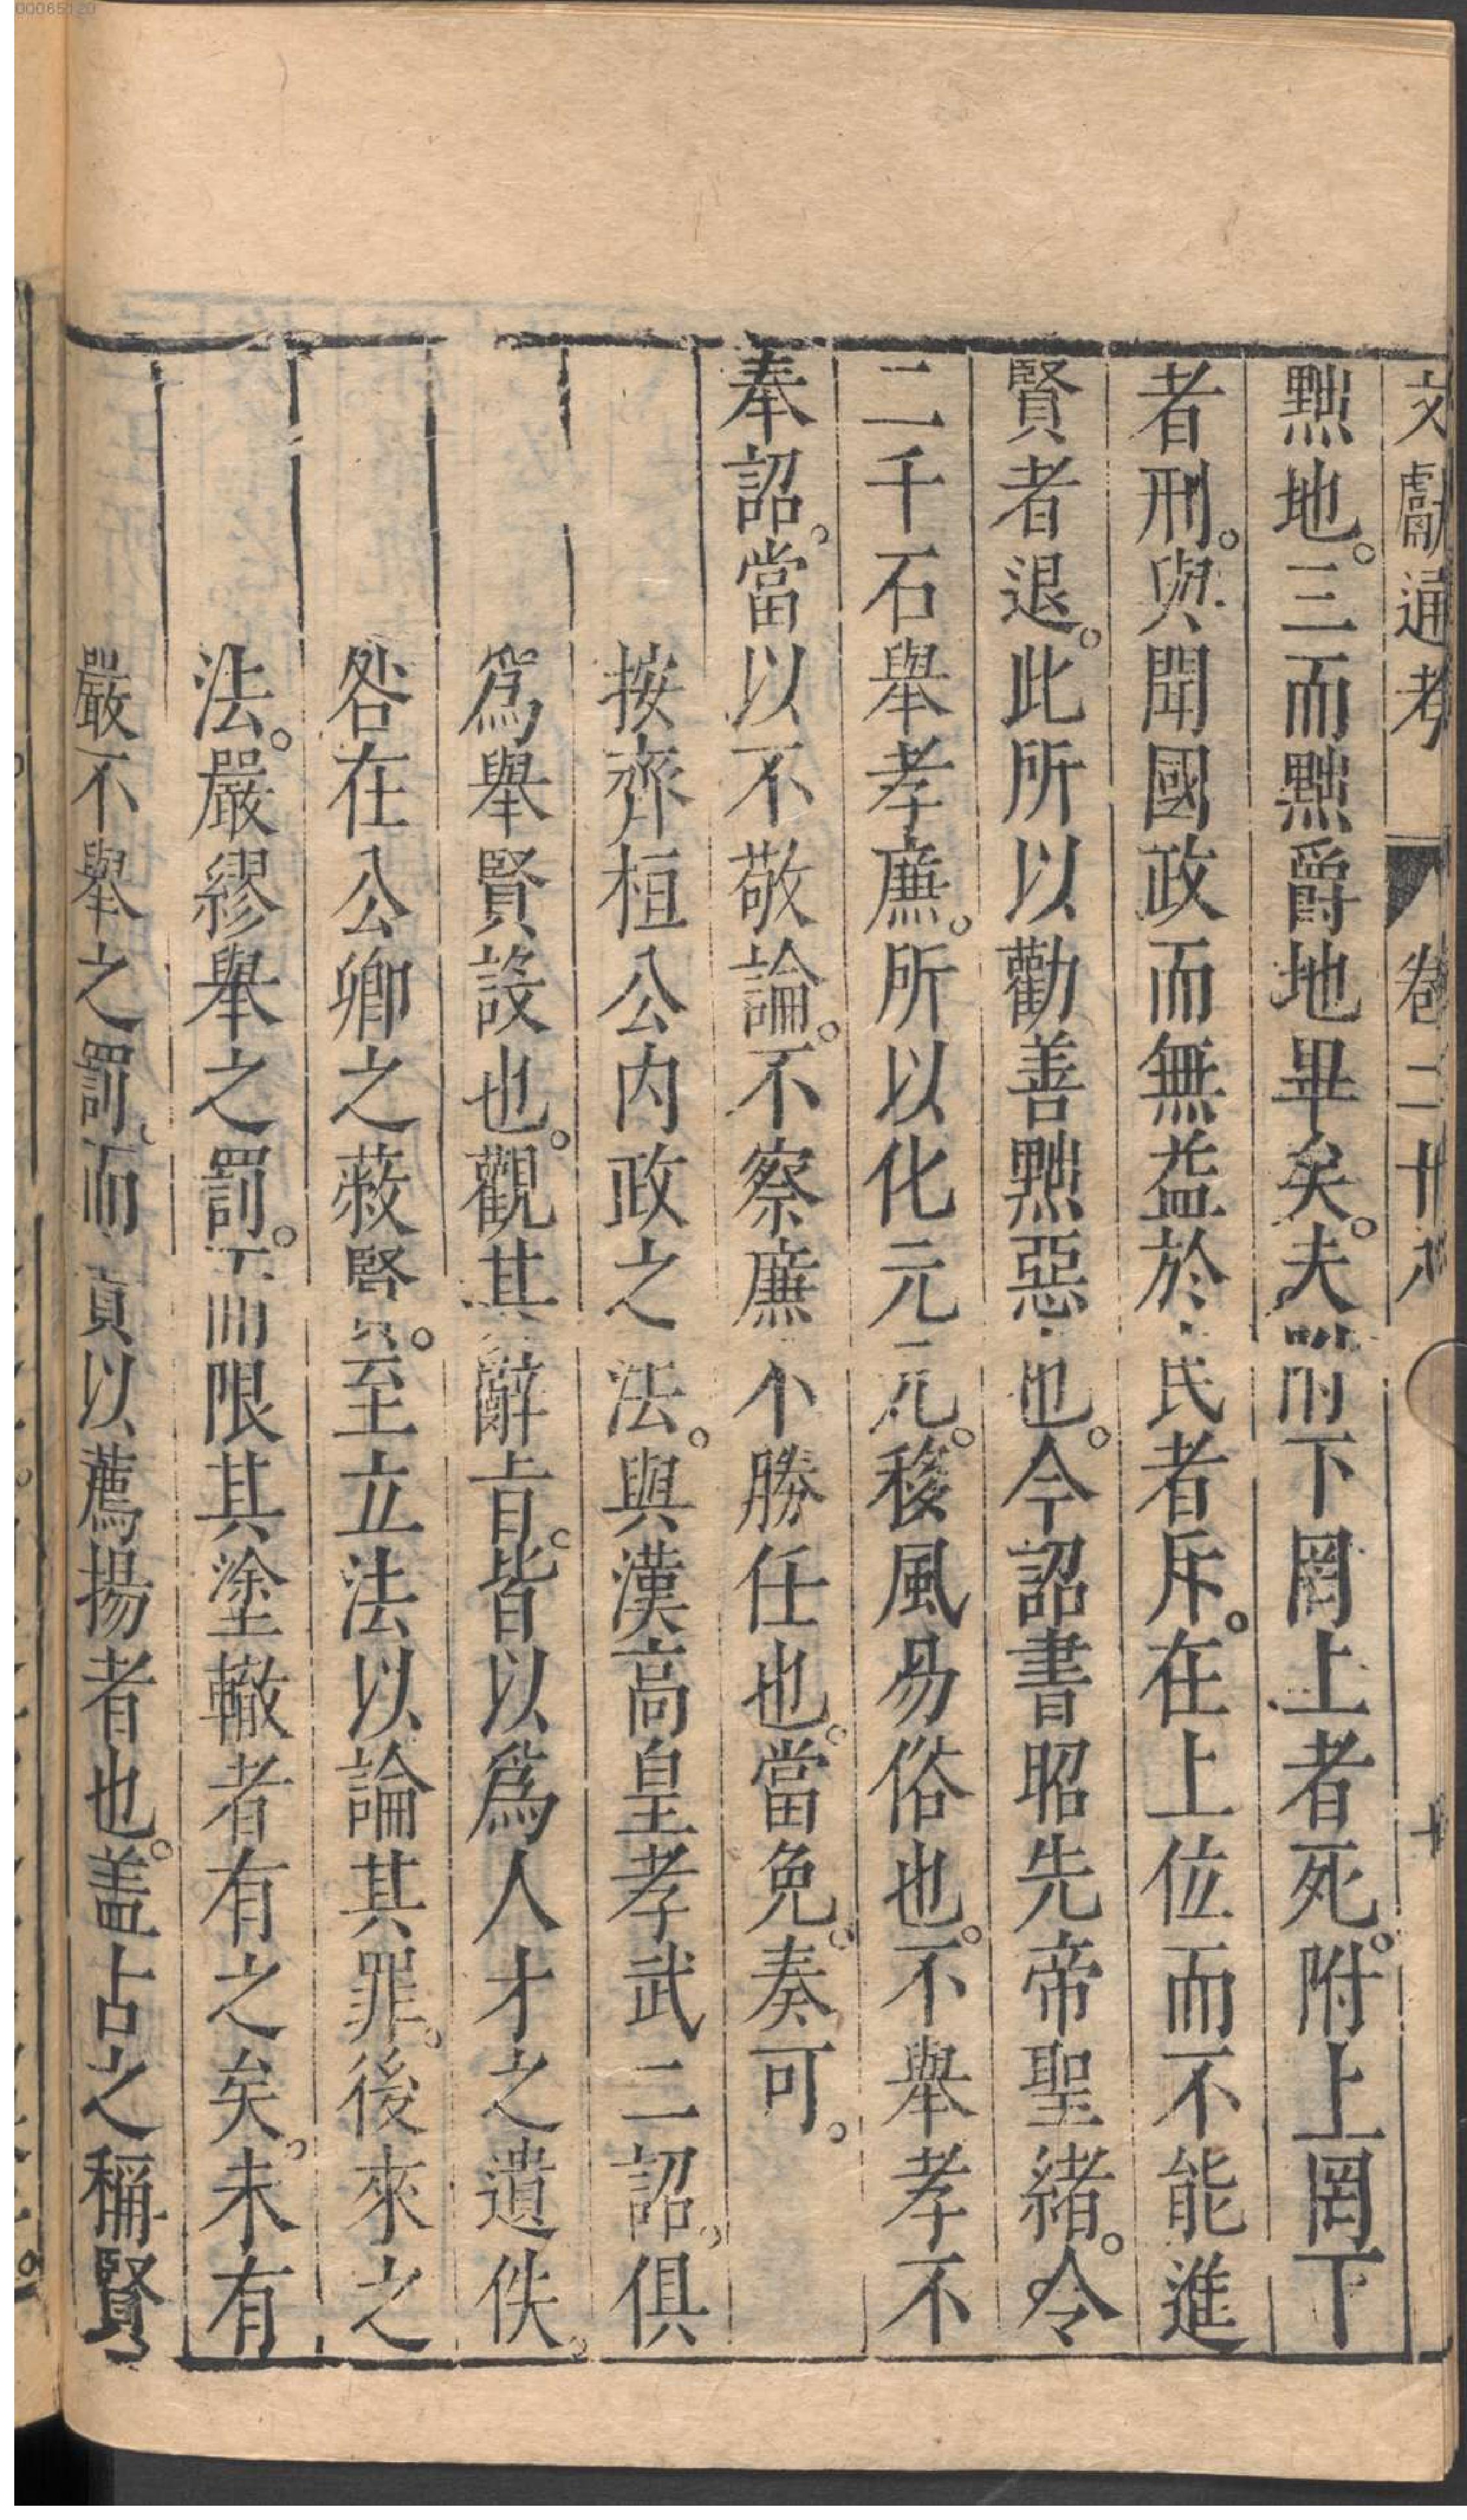 00065120
文獻通考 卷二十八 十
黜地。三而黜爵地畢矣。夫附下罔上者死。附上罔下
者刑。與聞國政而無益於民者斥。在上位而不能進
賢者退。此所以勸善黜惡也。今詔書昭先帝聖緒。令
二千石舉孝廉。所以化元元。移風易俗也。不舉孝不
奉詔。當以不敬論。不察廉不勝任也。當免。奏可。
按齊桓公内政之法。與漢高皇孝武二詔。俱
爲舉賢設也。觀其辭旨。皆以爲人才之遺佚。
咎在公卿之蔽賢。至立法以論其罪。後來之
法。嚴繆舉之罰。而限其塗轍者有之矣。未有
嚴不舉之罰。而責以薦揚者也。盖古之稱賢